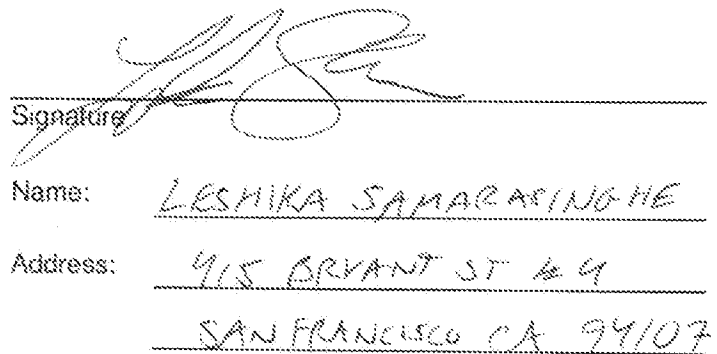 Signature
Name: LESHIKA SAMARASINGHE
Address: 415 BRYANT ST # 4
SAN FRANCISCO CA 94107